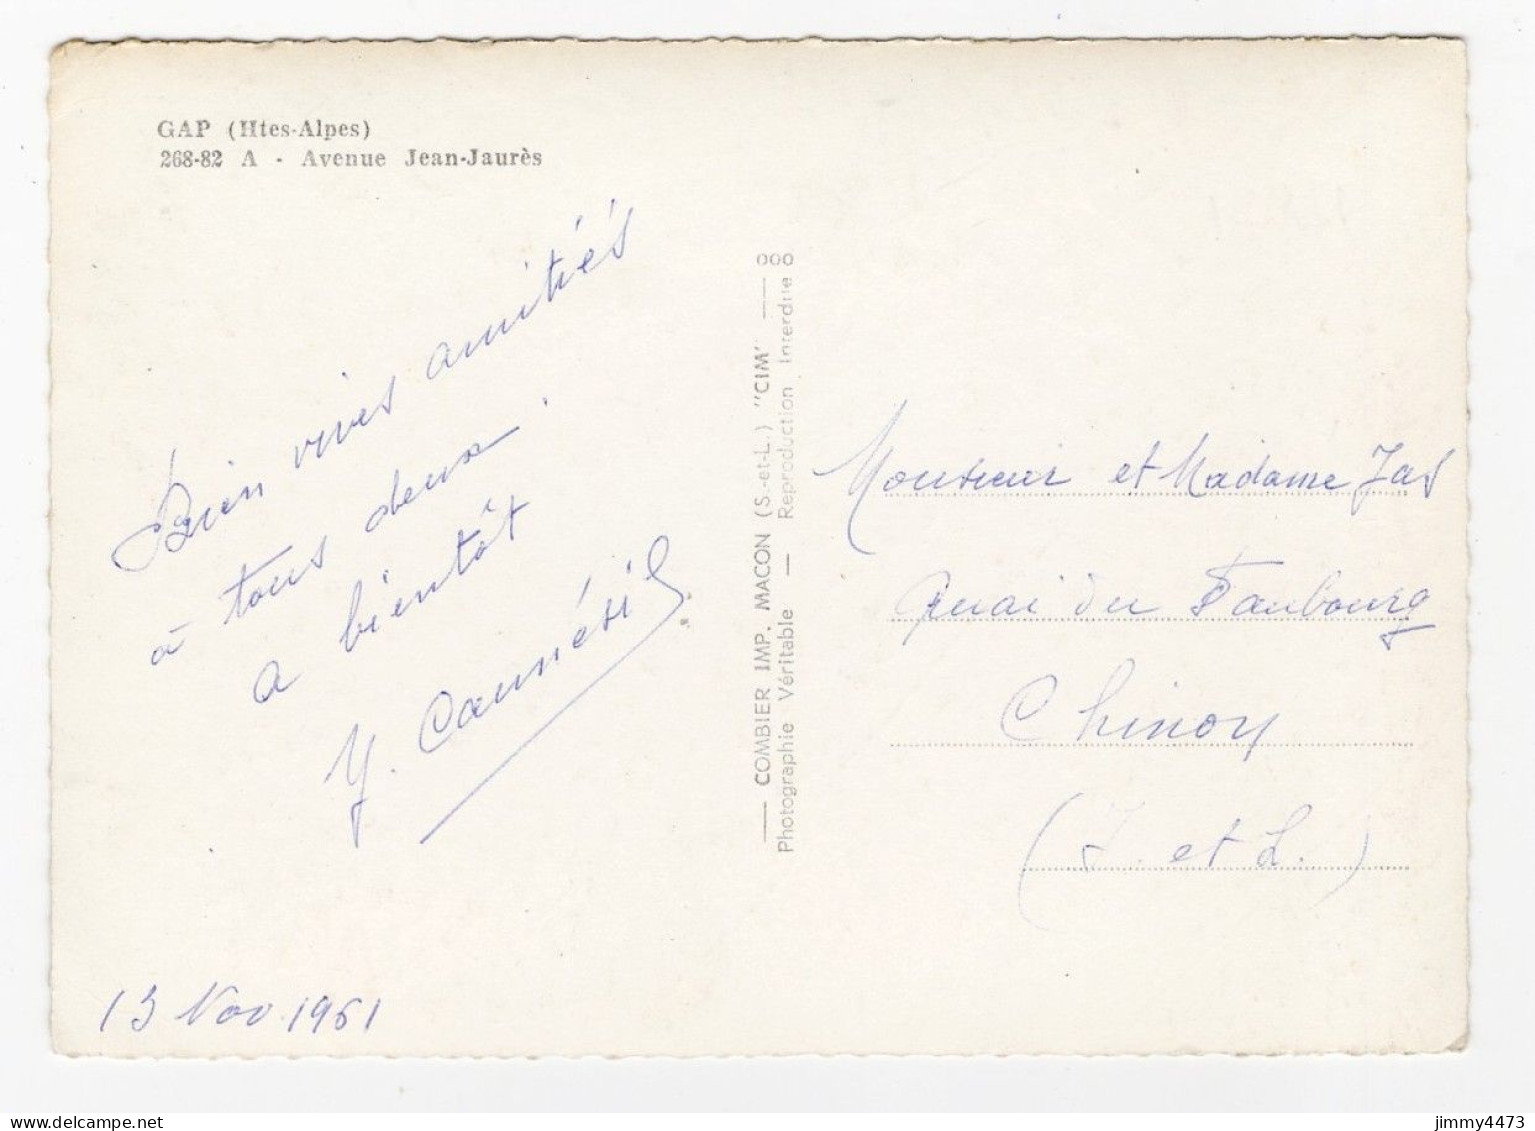 GAP (Htes-Alpes)
268-82 A - Avenue Jean-Jaurès
Bien vives amitiés
à tous deux.
a bientôt
Y.
13 Nov 1961
COMBIER IMP. MACON (S.-et-L.) "CIM"
Photographie Véritable — Reproduction Interdite
Monsieur et Madame Jas
Quai du Faubourg
Chinon
(I. et L.)
jimmy4473